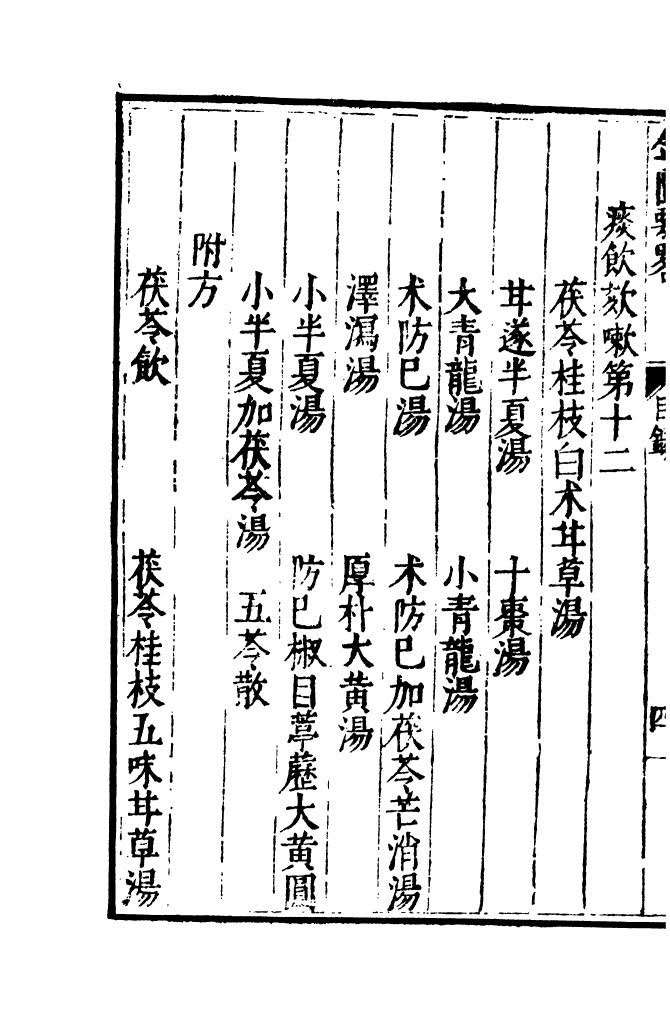 金匱要略 目錄 四
痰飲欬嗽第十二
茯苓桂枝白术甘草湯
甘遂半夏湯 十棗湯
大青龍湯 小青龍湯
术防巳湯 术防巳加茯苓芒消湯
澤瀉湯 厚朴大黃湯
小半夏湯 防巳椒目葶藶大黃圓
小半夏加茯苓湯 五苓散
附方
茯苓飲 茯苓桂枝五味甘草湯